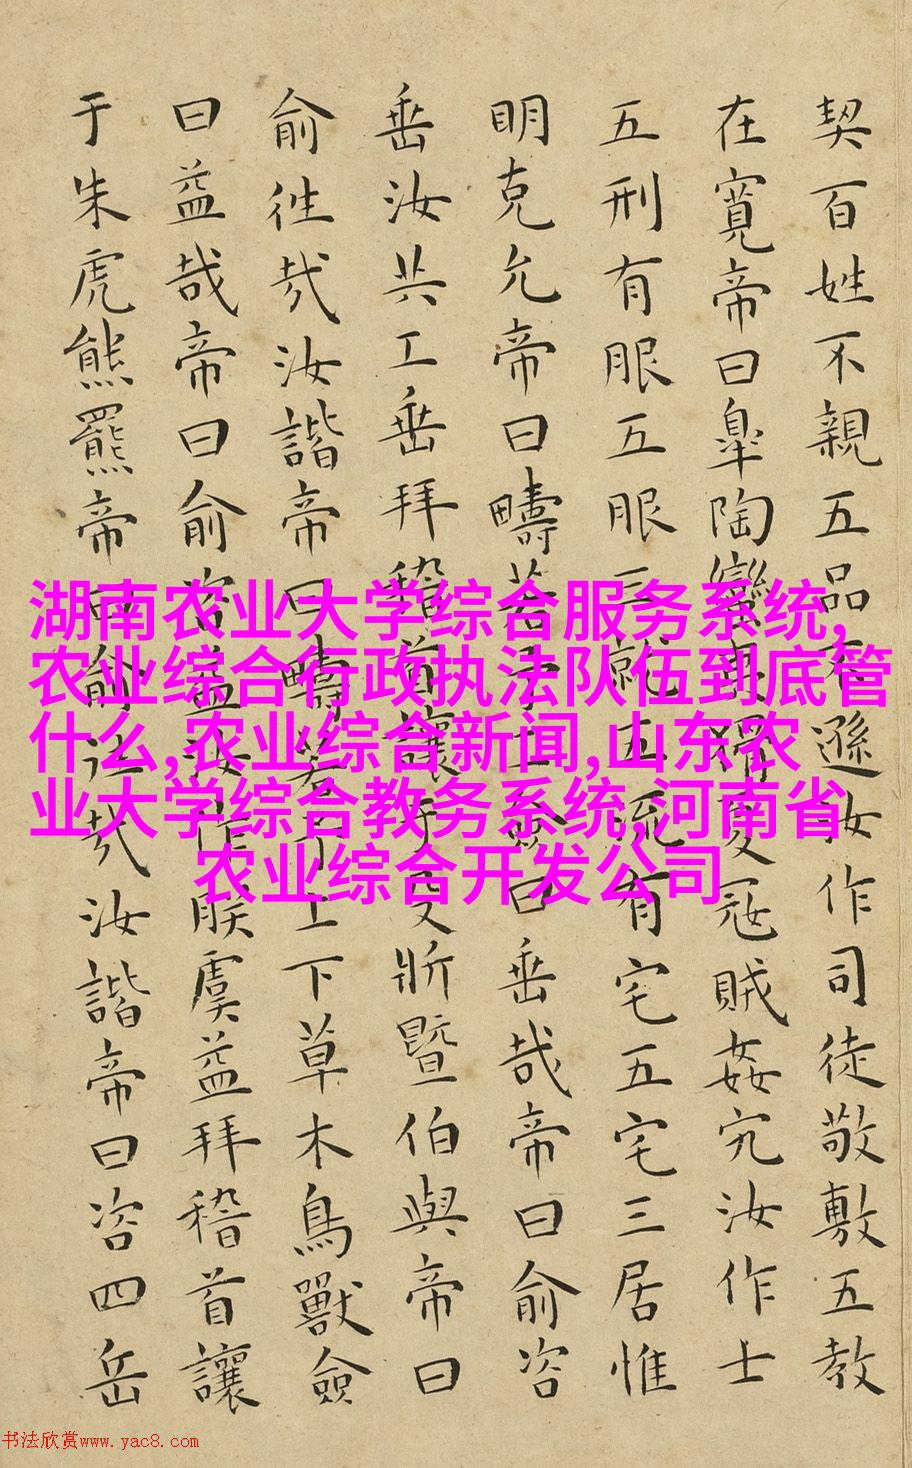 契百姓不親五品不遜汝作司徒敬敷五教
在寬帝曰皐陶蠻夷猾夏寇賊姦宄汝作士
五刑有服五服三就五流有宅五宅三居惟
明克允帝曰疇若予工僉曰垂哉帝曰俞咨
垂汝共工垂拜稽首讓于殳斨暨伯與帝曰
俞往哉汝諧帝曰疇若予上下草木鳥獸僉
曰益哉帝曰俞咨益汝作朕虞益拜稽首讓
于朱虎熊羆帝曰俞往哉汝諧帝曰咨四岳
湖南农业大学综合服务系统,
农业综合行政执法队伍到底管
什么,农业综合新闻,山东农
业大学综合教务系统,河南省
农业综合开发公司
书法欣赏www.yac8.com